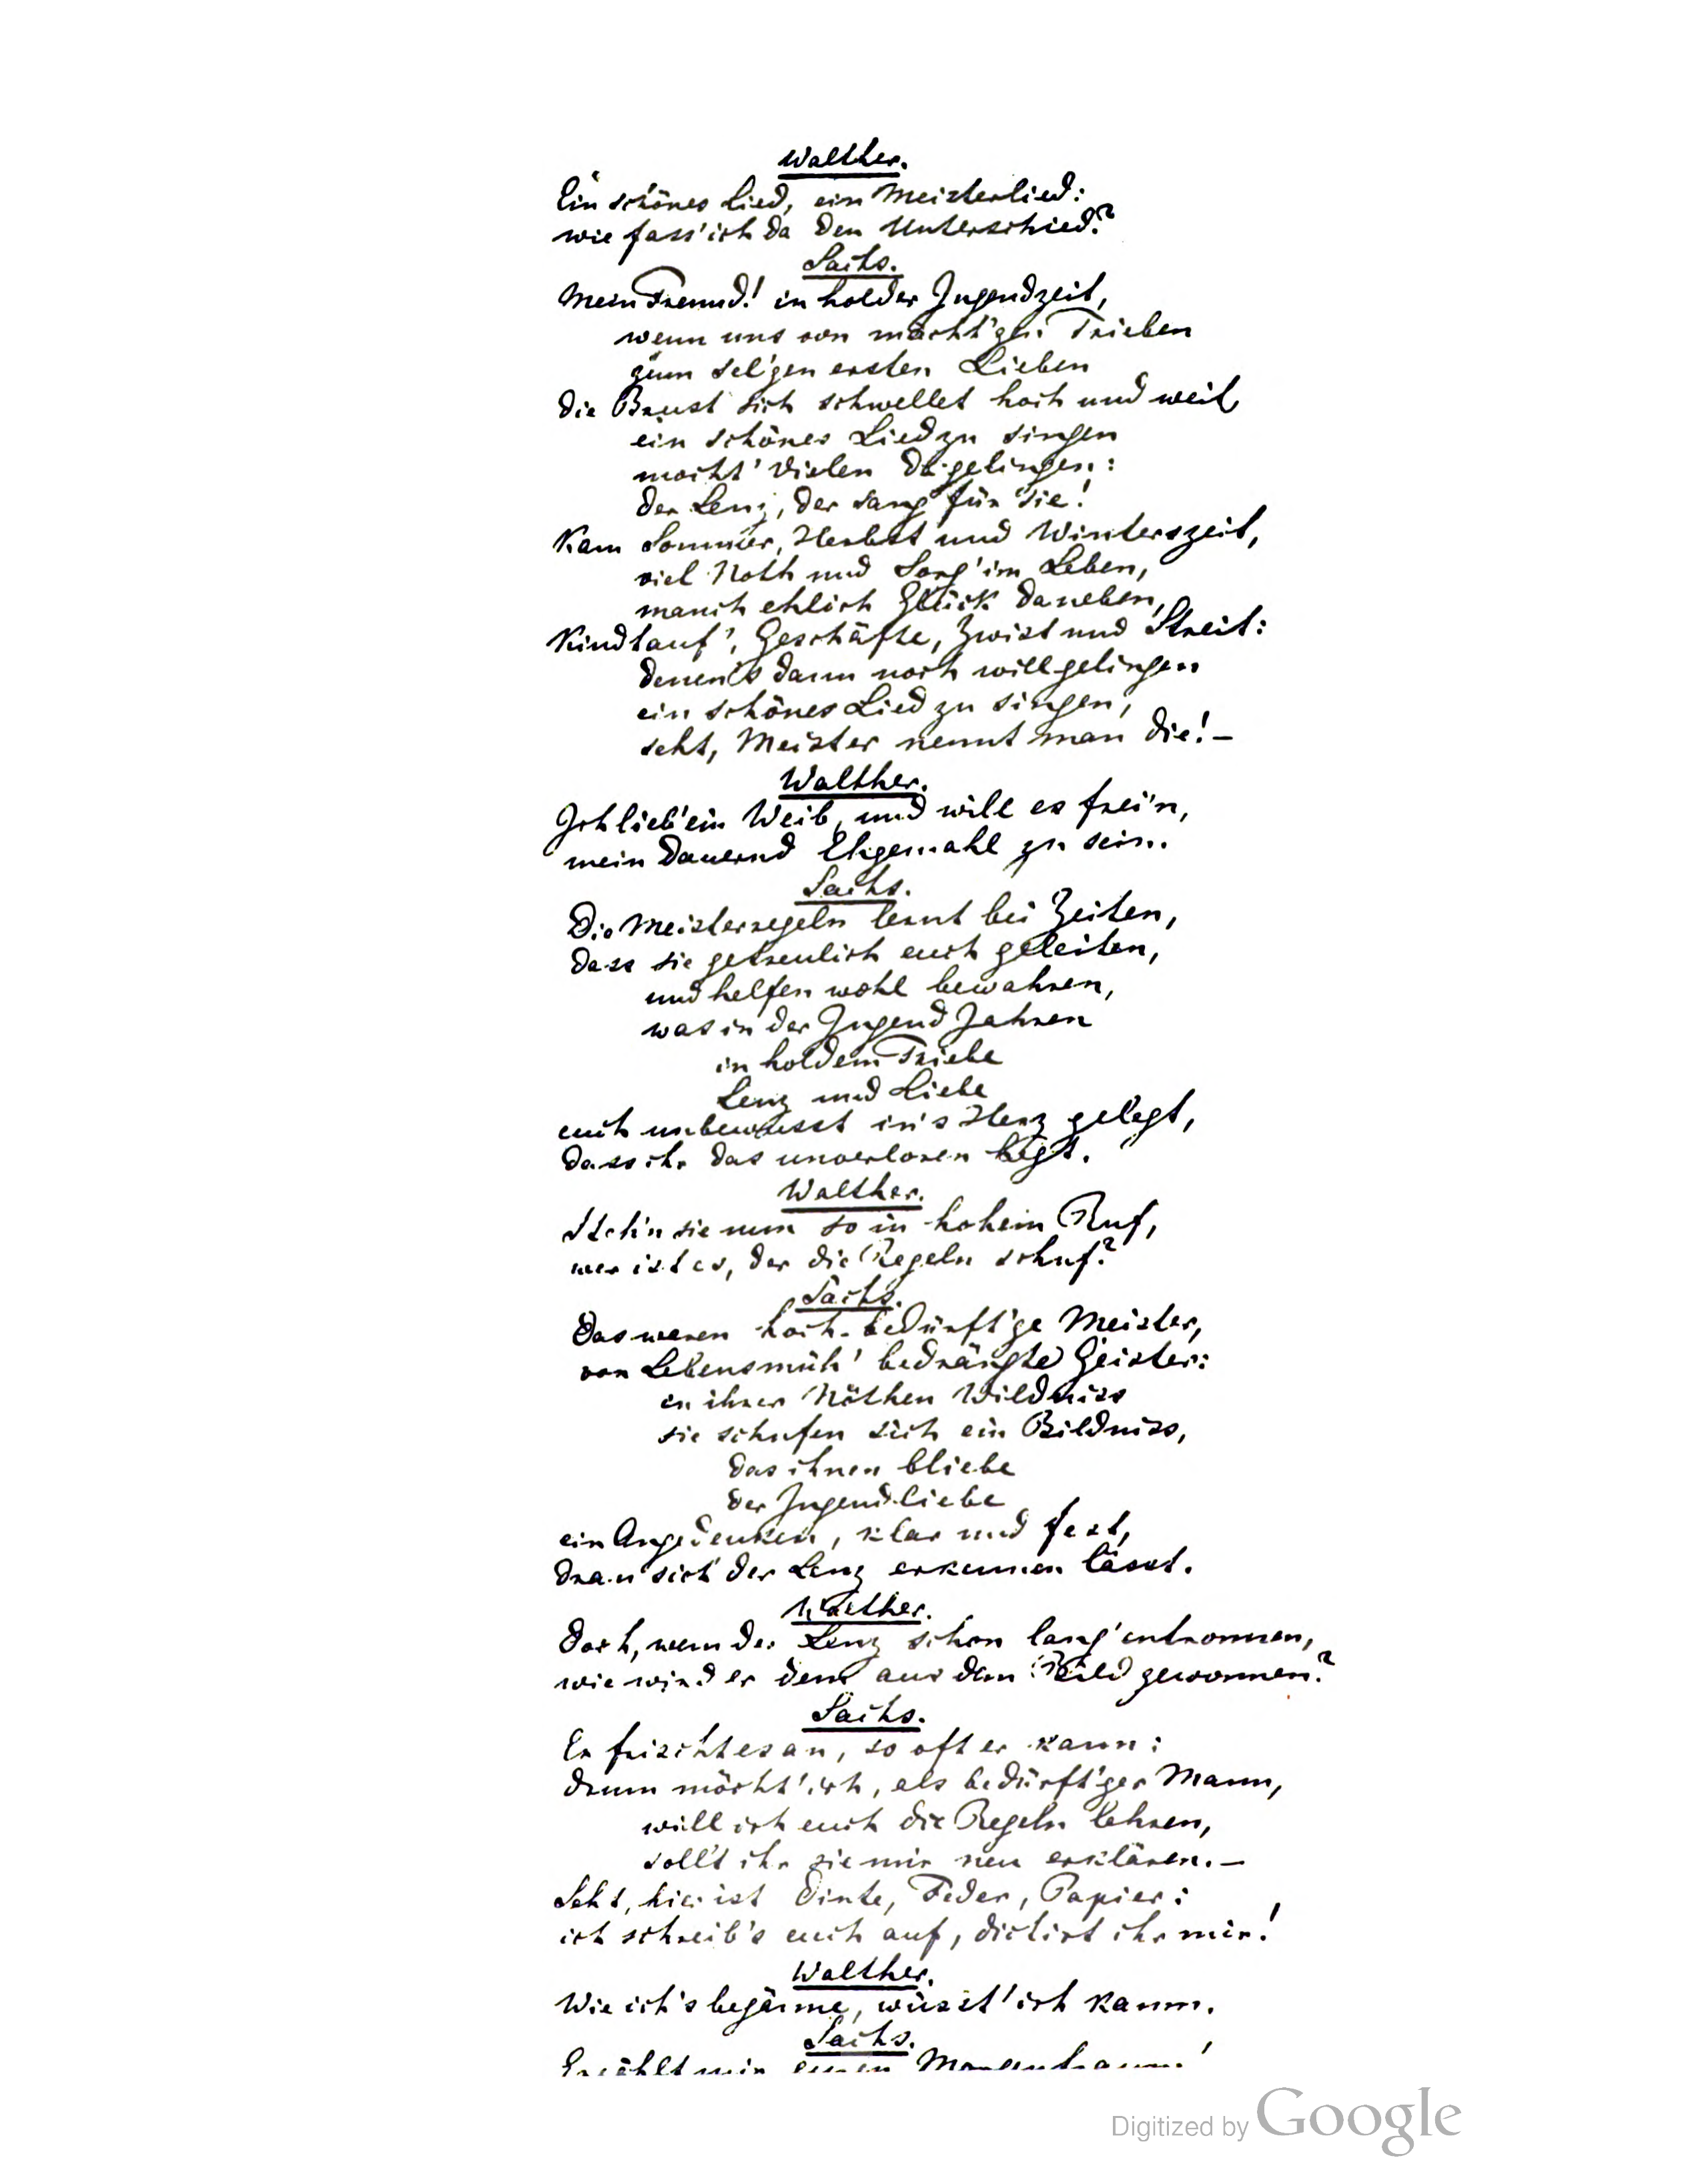 Walther.
Ein schönes Lied, ein Meisterlied:
wie fass' ich da den Unterschied?
Sachs.
Mein Freund! in holder Jugendzeit,
wenn uns von mächt'gen Trieben
zum sel'gen ersten Lieben
die Brust sich schwellet hoch und weit,
ein schönes Lied zu singen
mocht' vielen da gelingen:
der Lenz, der sang für sie!
Kam Sommer, Herbst und Winterszeit,
viel Noth und Sorg' im Leben,
manch ehlich Glück daneben,
Kindtauf', Geschäfte, Zwist und Streit:
denen's dann noch will gelingen
ein schönes Lied zu singen,
seht, Meister nennt man die! –
Walther.
Ich lieb' ein Weib, und will es frei'n,
mein dauernd Ehgemahl zu sein.
Sachs.
Die Meisterregeln lernt bei Zeiten,
dass sie getreulich euch geleiten,
und helfen wohl bewahren,
was in der Jugend Jahren
in holdem Triebe
Lenz und Liebe
euch unbewusst in's Herz gelegt,
dass ihr das unverloren hegt.
Walther.
Steh'n sie nun so in hohem Ruf,
wer ist es, der die Regeln schuf?
Sachs.
Das waren hoch-bedürft'ge Meister,
von Lebensmüh' bedrängte Geister:
in ihrer Nöthen Wildniss
sie schufen sich ein Bildniss,
das ihnen bliebe
der Jugendliebe
ein Angedenken, klar und fest,
dran sich der Lenz erkennen lässt.
Walther.
Doch, wem der Lenz schon lang' entronnen,
wie wird er dem aus dem Bild gewonnen?
Sachs.
Er frischt es an, so oft er kann:
drum möcht' ich, als bedürft'ger Mann,
will ich euch die Regeln lehren,
sollt ihr sie mir neu erklären. –
Seht, hier ist Dinte, Feder, Papier:
ich schreib's euch auf, dictirt ihr mir!
Walther.
Wie ich's begänne, wüsst' ich kaum.
Sachs.
Erzählt mir euren Morgentraum!
Digitized by Google